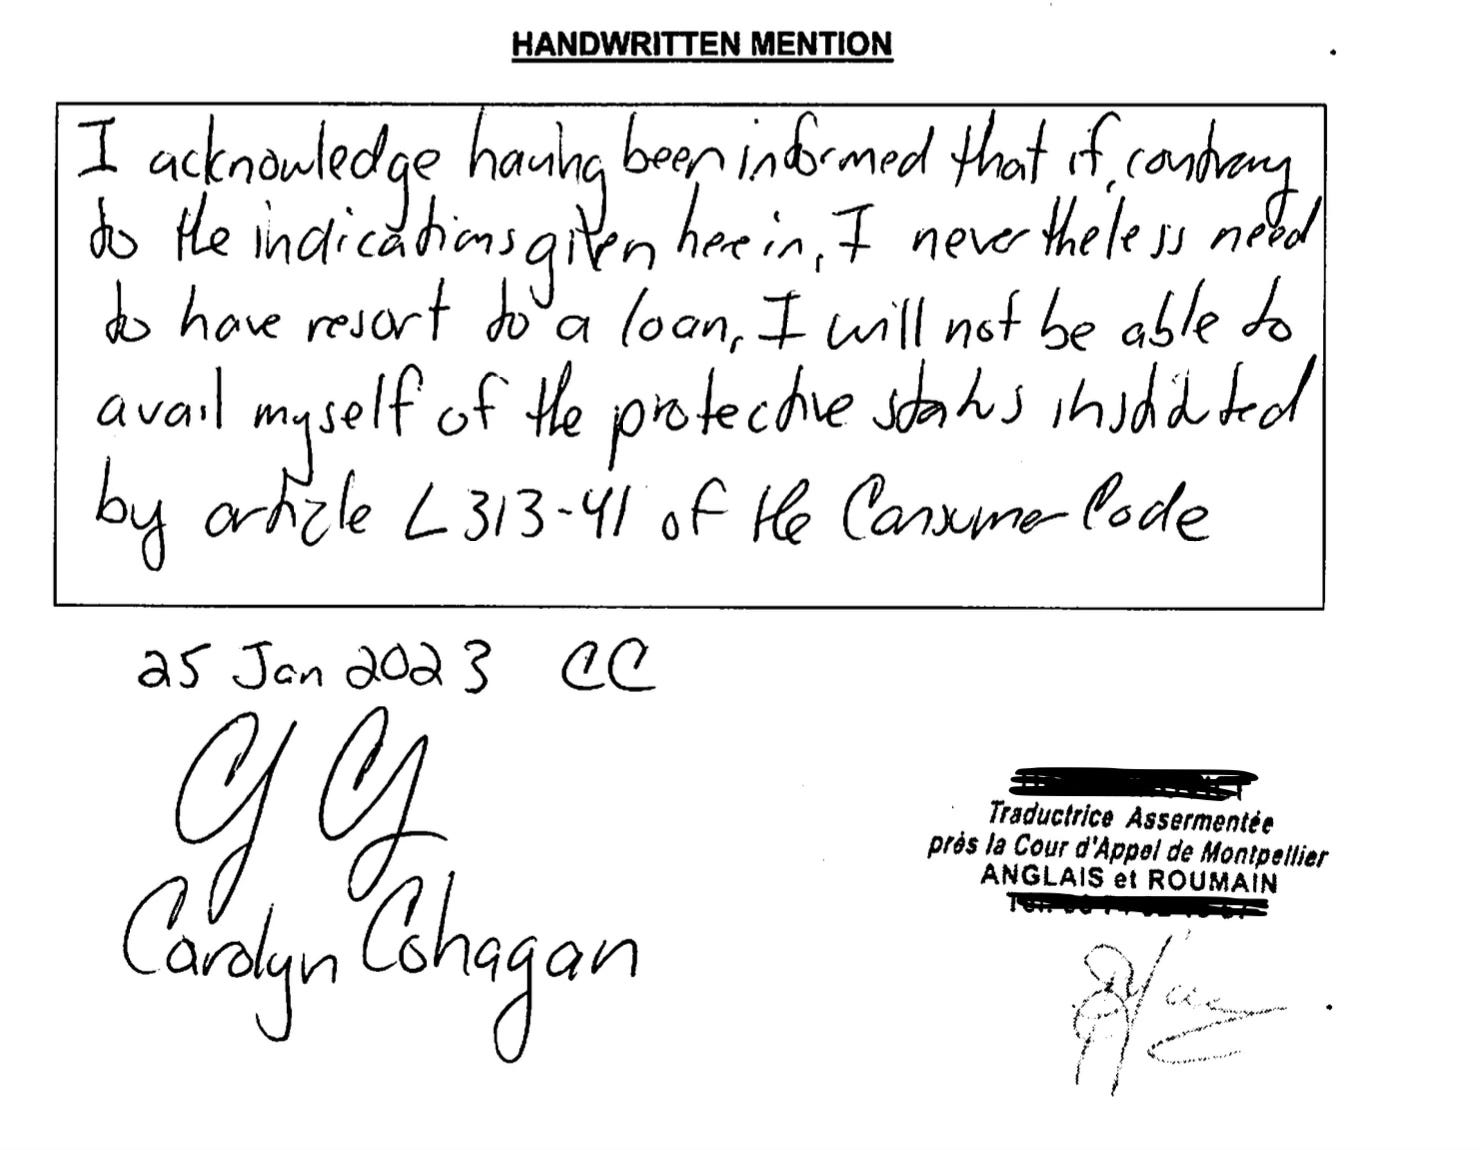 HANDWRITTEN MENTION
I acknowledge having been informed that if, contrary
to the indications given herein, I nevertheless need
to have resort to a loan, I will not be able to
avail myself of the protective status instituted
by article L313-41 of the Consumer Code
25 Jan 2023 CC
Carolyn Cohagan
Traductrice Assermentée
près la Cour d'Appel de Montpellier
ANGLAIS et ROUMAIN